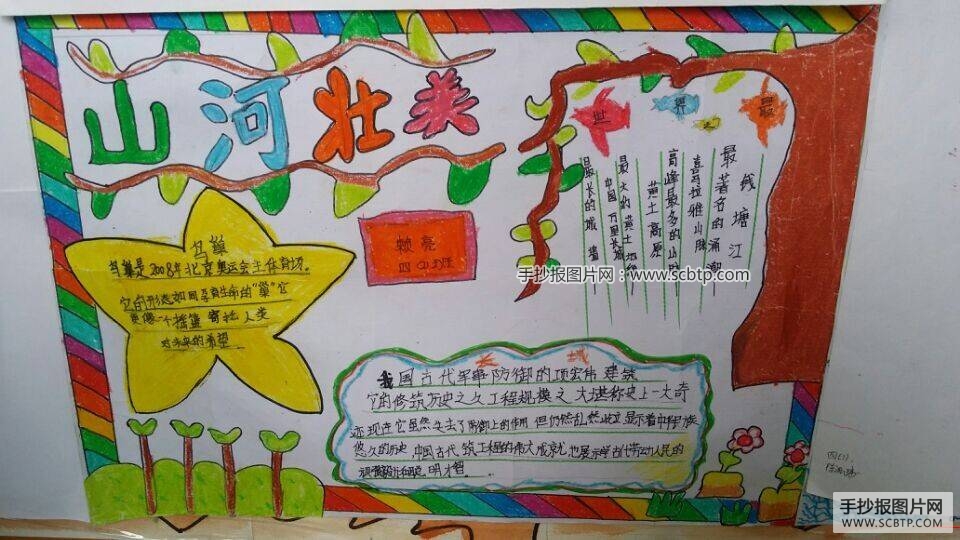 山河壮美
世界之最
钱塘江
最著名的涌潮
喜马拉雅山脉
高峰最多的山
黄土高原
最大的黄土
中国万里长城
最长的城墙
赖亮
四(1)班
手抄报图片网：www.scbtp.com
鸟巢
鸟巢是2008年北京奥运会主体育场。
它的形态如同孕育生命的“巢”它
更像一个摇篮寄托人类
对未来的希望
长城
我国古代军事防御的项宏伟建筑
它的修筑历史之久工程规模之大堪称史上一大奇
迹现在它虽然失去了防御上的作用但仍然
显示着中华民族
悠久的历史,中国古代筑工程的伟大成就尤也展示学古代劳动人民的
明才智
四(1)
手抄报图片网
WWW.SCBTP.COM